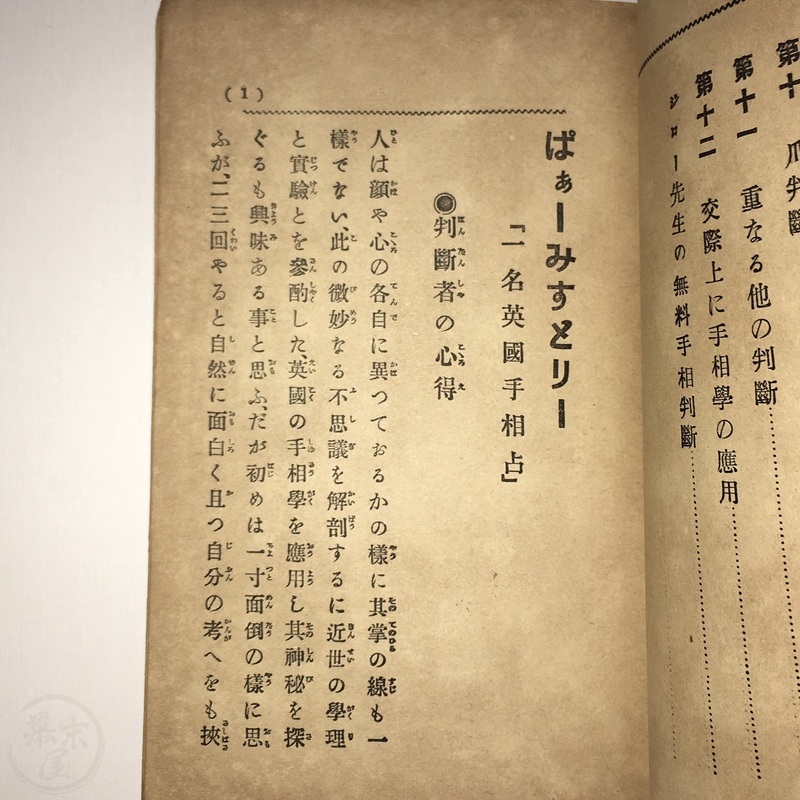 第十 爪判斷
第十一 重なる他の判斷
第十二 交際上に手相學の應用
ジロー先生の無料手相判斷
(1)
ぱぁーみすとりー
「一名英國手相占」
◉判斷者の心得
人は顔や心の各自に異つておるかの樣に其掌の線も一
樣でない、此の微妙なる不思議を解剖するに近世の學理
と實驗とを參酌した、英國の手相學を應用し其神秘を探
ぐるも興味ある事と思ふ、だが初めは一寸面倒の樣に思
ふが、二三回やると自然に面白く且つ自分の考へをも挾